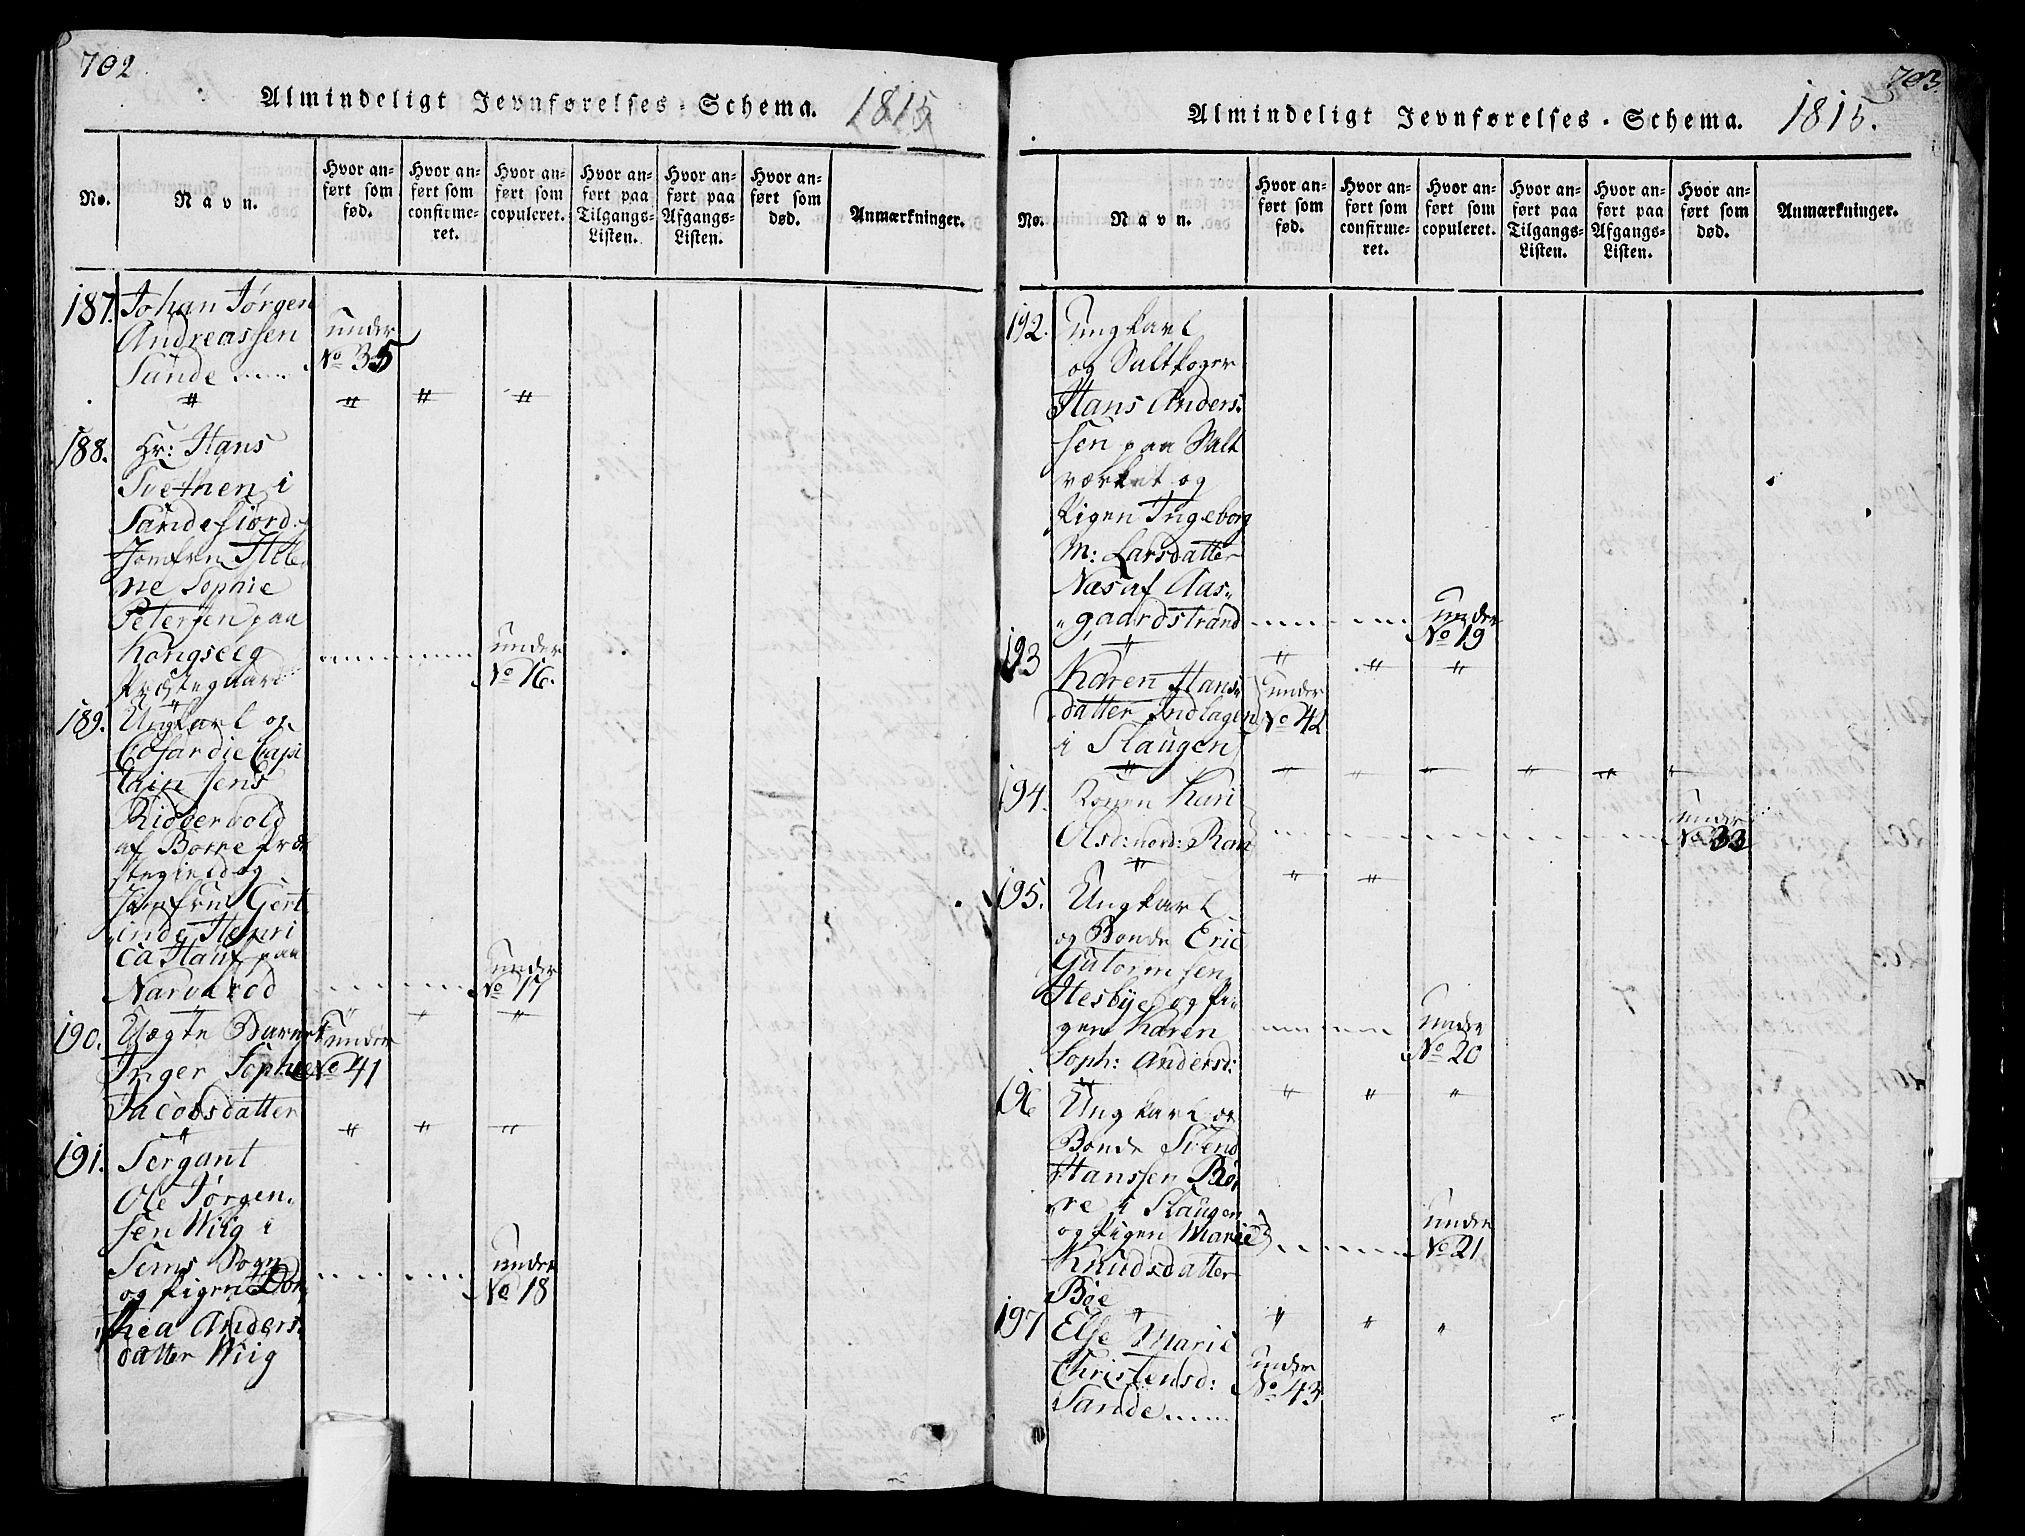 702
Almindeligt Jevnførelses-Schema. 1815
No.
Navn.
Hvor an-
ført som
fød.
Hvor an-
ført som
confirme-
ret.
Hvor an-
ført som
copuleret.
Hvor an-
ført paa
Tilgangs-
Listen.
Hvor an-
ført paa
Afgangs-
Listen.
Hvor an-
ført som
død.
Anmærkninger.
187. Johan Jørgen
Andreassen under
Sande ...... No 35
188. Hr: Hans
Tvethen i
Sandefiord
Jomfru Hele
ne Sophie
Petersen paa
Kongseeg under
Præstegaard No 16.
189. Ungkarl og
Cofardie Capi
tain Jens
Riddervold
af Borre Præ
stegield og
Jomfrue Gert
rude Henri
ca Hauf paa under
Narverød No 17
190. Uægte Barnet under
Inger Sophie No 41
Jacobsdatter
191. Sergant
Ole Jørgen-
sen Wiig i
Sems Sogn under
og Pigen Dor No 18
thea Anders
datter Wiig
703
Almindeligt Jevnførelses-Schema. 1815.
No.
Navn.
Hvor an-
ført som
fød.
Hvor an-
ført som
confirme-
ret.
Hvor an-
ført som
copuleret.
Hvor an-
ført paa
Tilgangs-
Listen.
Hvor an-
ført paa
Afgangs-
Listen.
Hvor an-
ført som
død.
Anmærkninger.
192. Ungkarl
og Saltkoger
Hans Anders-
sen paa Salt
værket og
Pigen Ingeborg
M: Larsdatter
Næs af Aas-
gaardstrand under No 19
193 Karen Hans under
datter Indlagen No 42
i Slaugen
194. Konen Kari under
Olsd: nord: Ram No 33
195. Ungkarl
og Bonde Eric
Gutormsen
Hesbye og Pi-
gen Karen under
Soph: Andersd: No 20
196 Ungkarl og
Bonde Svend
Hanssen Bør
re i Slaugen under
og Pigen Marie No 21
Knudsdatter
Bøe
197 Else Marie
Christensd: under
Sande ...... No 43